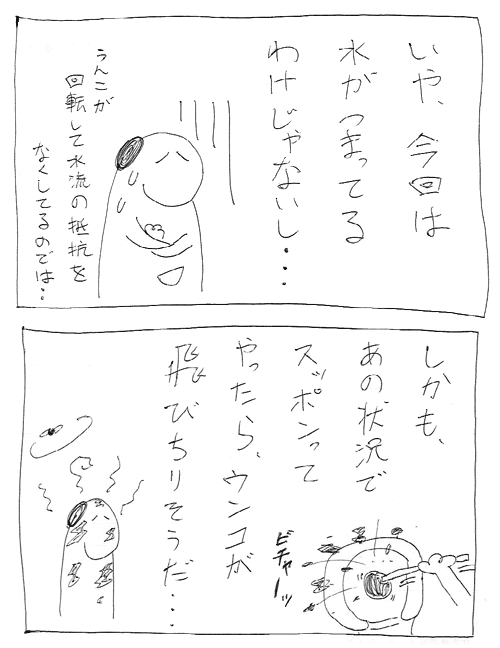 いや、今回は
水がつまってる
わけじゃないし・・・
うんこが
回転して水流の抵抗を
なくしてるのでは・・
しかも、
あの状況で
スッポンって
やったら、ウンコが
飛びちりそうだ・・・
ビチャーッ